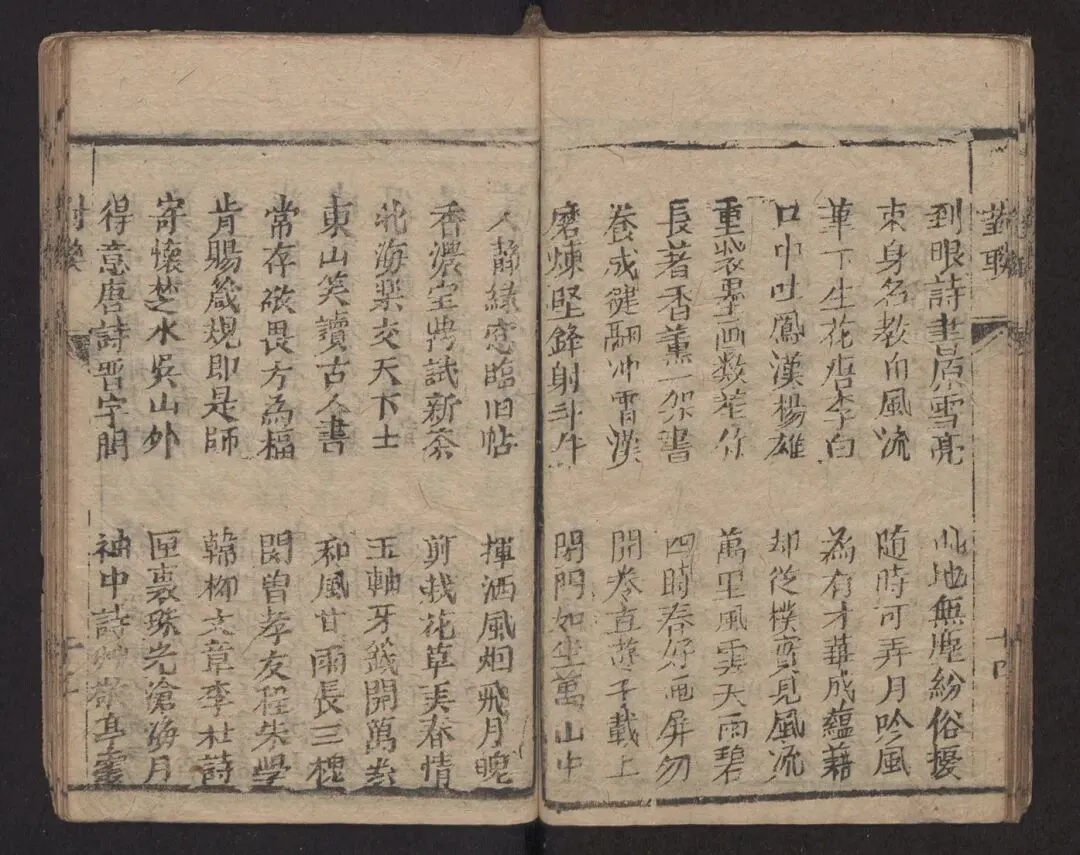 對聯
十四
到眼詩書原雪亮
束身名教自風流
筆下生花唐李白
口中吐鳳漢楊雄
重裝墨画数竿竹
長著香薰一架書
養成健翮冲霄漢
磨煉堅鋒射斗牛
此地無塵紛俗擾
随時可弄月吟風
為有才華成蘊藉
却從樸實見風流
萬里風雲天雨碧
四時春好画屏勿
開卷直遊千載上
閉門如坐萬山中
人靜緑窓臨旧帖
香濃宝鼎試新茶
北海樂交天下士
東山笑讀古人書
常存敬畏方為福
肯賜箴規即是師
寄懷楚水吳山外
得意唐詩晋字間
揮洒風烟飛月晚
剪裁花草美春情
玉軸牙籤開萬卷
和風甘雨長三槐
閔曾孝友程朱學
韓柳文章李杜詩
匣裏珠光滄海月
袖中詩